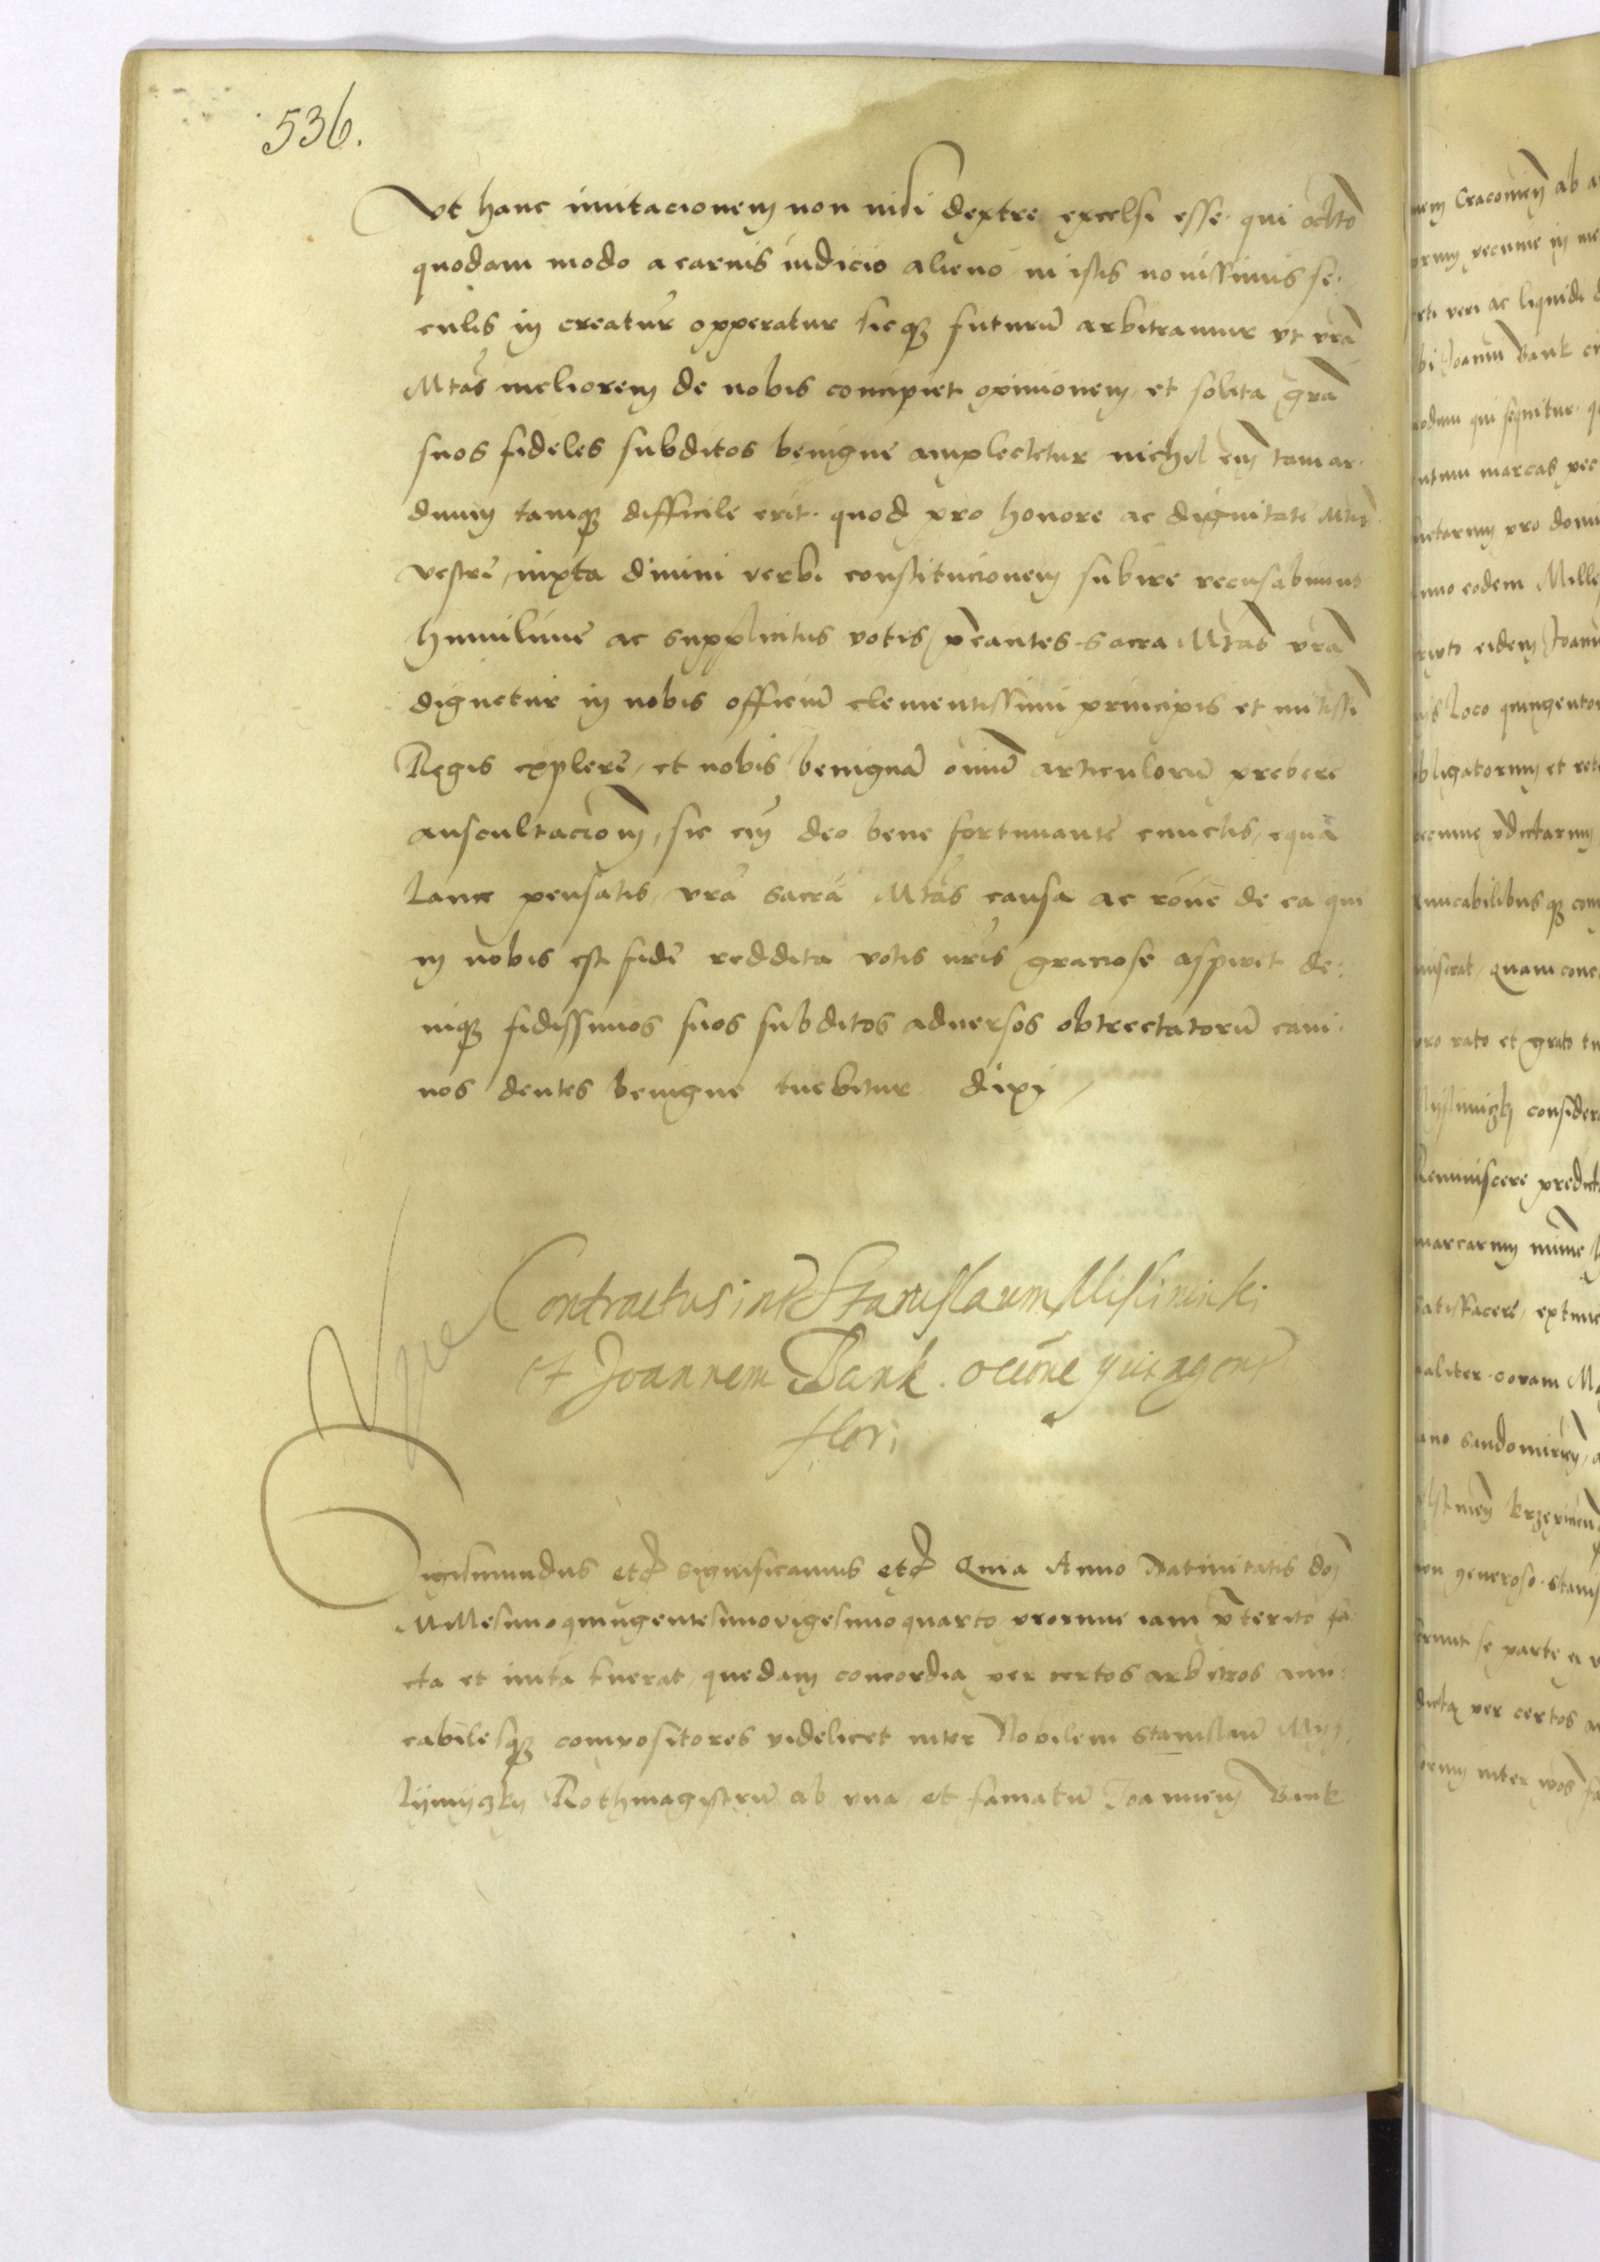 536.
Vt hanc mutacionem non nisi dextre excelsi esse qui
quodam modo a carnis iudicio alieno in istis novissimis se
culis in creatur̃ opperatur sicq3 futurũ arbitramur vt vrã
Mtas meliorem de nobis concipiet opinionem et solita grã
suos fideles subditos benigne amplectetur nichil em̃ tam ar
duum tamq3 difficile erit quod pro honore ac dignitate Mtis
vestre, iuxta divini verbi constitucionem subire recusabimus
humilime ac supplicitus votis p̃cantes sacra Mtas vrã
dignetur in nobis officiũ clementissimi principis et mitissi
Regis explere, et nobis benignã oĩniũ articulorũ prebere
auscultacionem, sic em̃ deo bene fortunante cunctis, equã
lance pensatis, vrã sacrã Mtas causa ac rõne de ea que
in nobis est fide reddita votis nr̃is graciose aspiret de
niq3 fidissimos suos subditos adversos obtrectatorũ cani
nos dentes benigne tuebitur dixi
Contractus inter Stanislaum Mislininski
et Joannem Bank
flori
Sigismundus etc significamus etc Quia Anno Nativitatis dom̃
Millesimoquingentesimovigesimoquarto proxime iam p̃terito fa
cta et inita fuerat quedam concordia per certos arbitros ami
cabilesq3 compositores videlicet inter Nobilem Stanislaũ Mys
lymyczky Rothmagistrũ ab vna et famatũ Joannem Bank
nem Cracovien̄ ab
pecunie in
veri ac liquidi
Joanni Bank
qui sequitur
marcas pec
pro domo
eodem Mille
eidem Joan
loco quingento
obligatorum et
amicabilibusq3 com
quam
pro rato et grato
consider
Reminiscere predict
marcarum
satisfacere, extunc
coram
Sandomirien̄
generoso Stanis
se parte
dicta per certos
inter